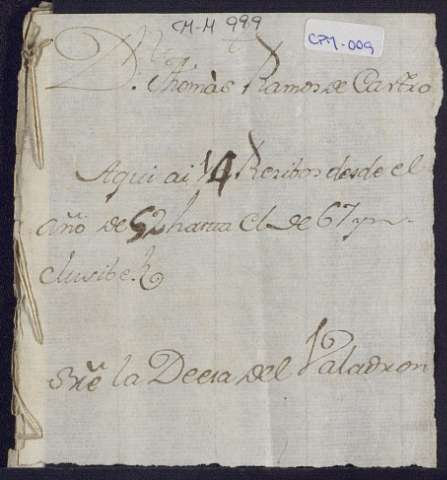 CM-M 999
CPM-009
D. Thomàs Ramos de Castro
Aqui ai 14 Resibos desde el
año de 52 hasta el de 67 yn-
clusibe
sre la Deesa del Paladron